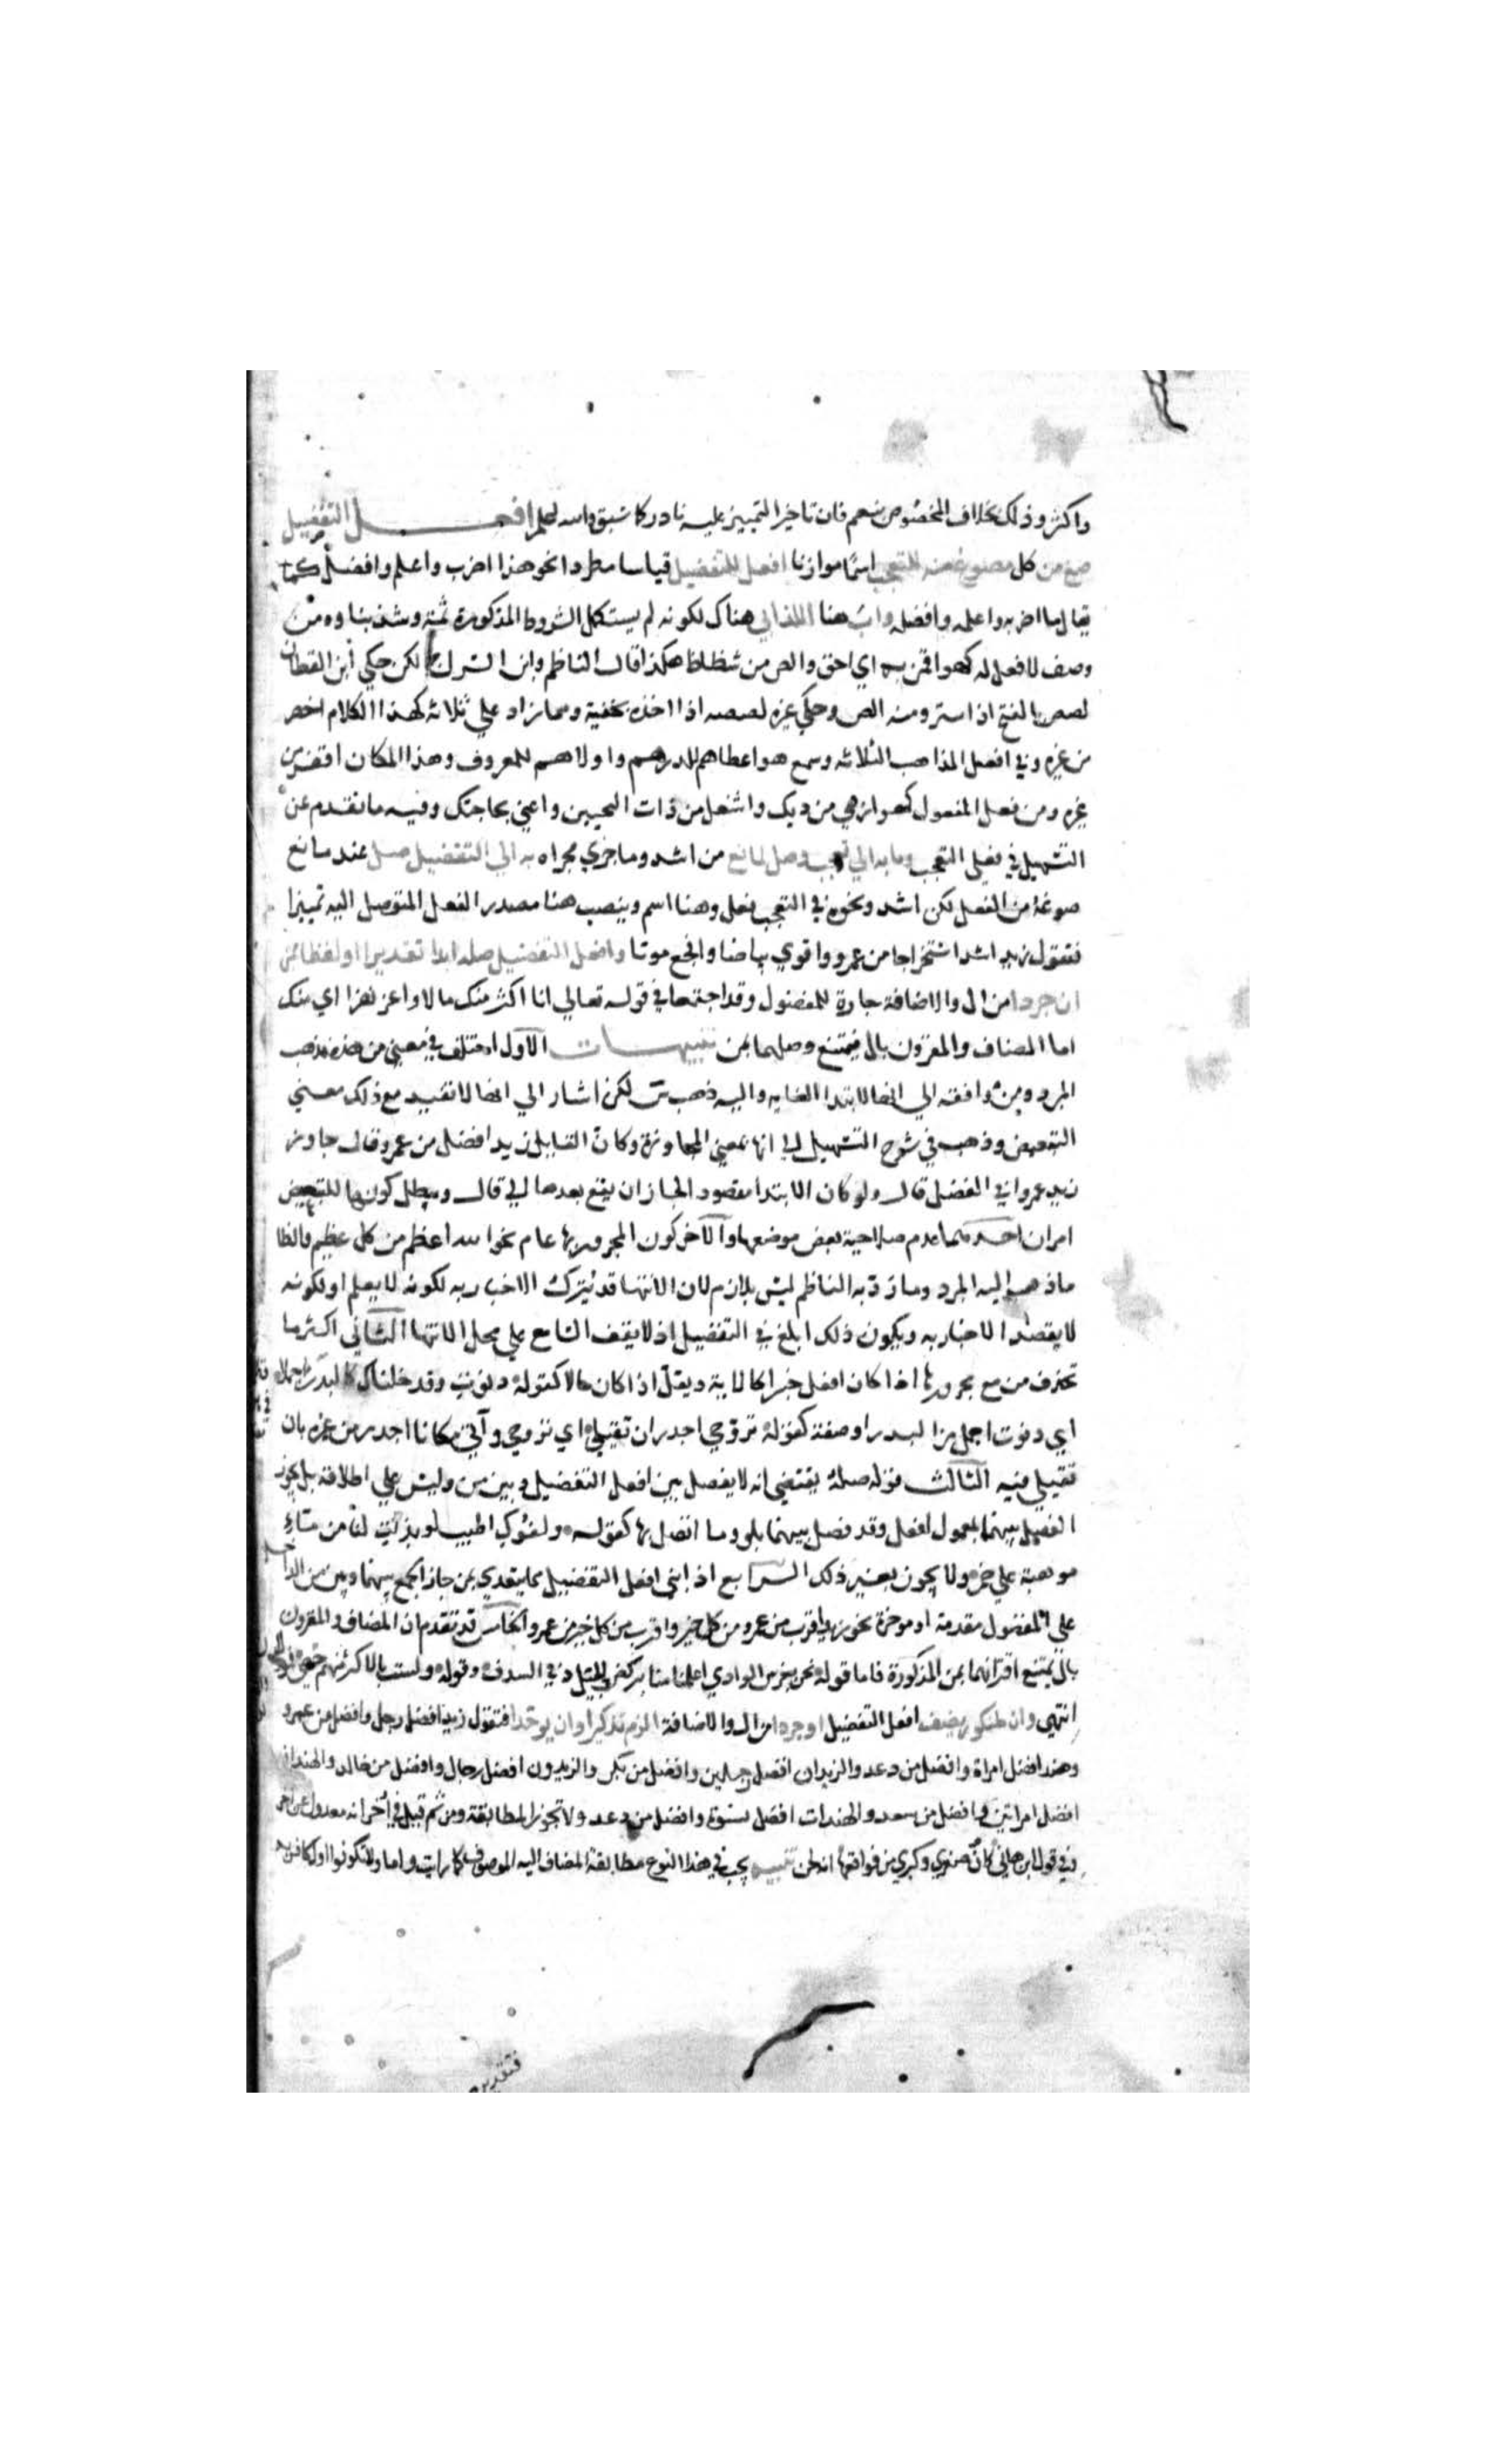 واكثر وذلك بخلاف المخصوص بنعم فان تاخير التمييز عليه نادر كما سبق والله اعلم افعل التفضيل
صغ من كل مصوغ منه للتعجب اسما موازنا افعل للتفضيل قياسا مطردا نحو هذا اضرب واعلم وافضل كما
يقال ما اضربه واعلمه وافضله واب هنا اللذ ابي هناك لكونه لم يستكمل الشروط المذكورة ثمة وشذ بناوه من
وصف لا فعل له كهو اقمن به اي احق والص من شظاظ هكذا قال الناظم وابن السراج لكن حكي ابن القطاع
لصص بالفتح اذا استتر ومنه الص وحكي غيره لصصه اذا اخذه بخفية ومما زاد علي ثلاثة كهذا الكلام اخصر
من غيره وفي افعل المذاهب الثلاثة وسمع هو اعطاهم للدرهم واولاهم للمعروف وهذا المكان اقفر من
غيره ومن فعل المفعول كهو ازهي من ديك واشغل من ذات النحيين واعني بحاجتك وفيه ما تقدم عن
التسهيل في فعلي التعجب وما به الي تعجب وصل لمانع من اشد وما جري مجراه به الي التفضيل صل عند مانع
صوغه من الفعل لكن اشد ونحوه في التعجب فعل وهنا اسم وينصب هنا مصدر الفعل المتوصل اليه تمييزا
فتقول زيد اشد استخراجا من عمرو واقوي بياضا وافجع موتا وافعل التفضيل صله ابدا تقديرا او لفظا بمن
ان جردا من ال والاضافة جارة للمفضول وقد اجتمعا في قوله تعالي انا اكثر منك مالا واعز نفرا اي منك
اما المضاف والمقرون بال فيمتنع وصلهما بمن تنبيهات الاول اختلف في معني من هذه فذهب
المبرد ومن وافقه الي انها لابتدا الغاية واليه ذهب س لكن اشار الي انها لا تفيد مع ذلك معني
التبعيض وذهب في شرح التسهيل الي انها بمعني المجاوزة وكان القايل زيد افضل من عمرو قال جاوز
زيد عمروا في الفضل قال ولو كان الابتدا مقصودا لجاز ان يقع بعدها الي قال ويبطل كونها للتبعيض
امران احدهما عدم صلاحية بعض موضعها والآخر كون المجرور بها عام نحو الله اعظم من كل عظيم والظا
ما ذهب اليه المبرد وما رد به الناظم ليس بلازم لان الانتها قد يترك الاخبار به لكونه لا يعلم او لكونه
لا يقصد الاخبار به ويكون ذلك ابلغ في التفضيل اذ لا يقف السامع علي محل الانتها الثاني اكثر ما
تحذف من مع مجرورها اذا كان افعل خبرا كالاية ويقل اذا كان حالا كقوله دنوت وقد خلناك كالبدر اجملا
اي دنوت اجمل من البدر او صفة كقوله تروحي اجدر ان تقيلي اي تروحي وآتي مكانا اجدر من غيره بان
تقيلي فيه الثالث قوله صله يقتضي انه لا يفصل بين افعل التفضيل وبين من وليس علي اطلاقه بل يجوز
الفصل بينهما بمعمول افعل وقد فصل بينهما بلو وما اتصل بها كقوله ولفوك اطيب لو بذلت لنا من ماء
موهبة علي خمر ولا يجوز بغير ذلك الرابع اذا بني افعل التفضيل مما يتعدي بمن جاز الجمع بينهما وبين من الداخلة
علي المفضول مقدمة او موخرة نحو زيد اقرب من عمرو من كل خير واقرب من كل خير من عمرو الخامس قد تقدم ان المضاف والمقرون
بال يمتنع اقترانهما بمن المذكورة فاما قوله نحن بغرس الودي اعلمنا منا بركض الجياد في السدف وقوله ولست بالاكثر منهم حصي
انتهي وان لمنكور يضف افعل التفضيل او جردا من ال والاضافة الزم تذكيرا وان يوحدا فتقول زيد افضل رجل وافضل من عمرو
وهند افضل امراة وافضل من دعد والزيدان افضل رجلين وافضل من بكر والزيدون افضل رجال وافضل من خالد والهندان
افضل امراتين وافضل من سعد والهندات افضل نسوة وافضل من دعد ولا تجوز المطابقة ومن ثم قيل في اخر انه معدول عن اخر
وفي قول ابن هاني كان صغري وكبري من فواقعها انه لحن تنبيه يجب في هذا النوع مطابقة المضاف اليه الموصوف كما رايت واما ولا تكونوا اول كافر به